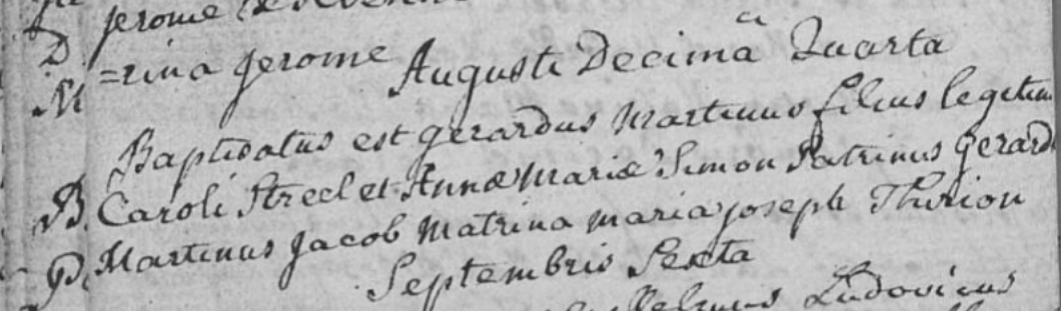 jerome
D
M =rina jerome Augusti Decimâ Quarta
Baptisatus est gerardus martinus filius legitim
B. Caroli Streel et Annæ mariæ Simon Patrinus Gerard
P. Martinus jacob matrina maria joseph Thirion
Septembris Sexta
Ludovicus